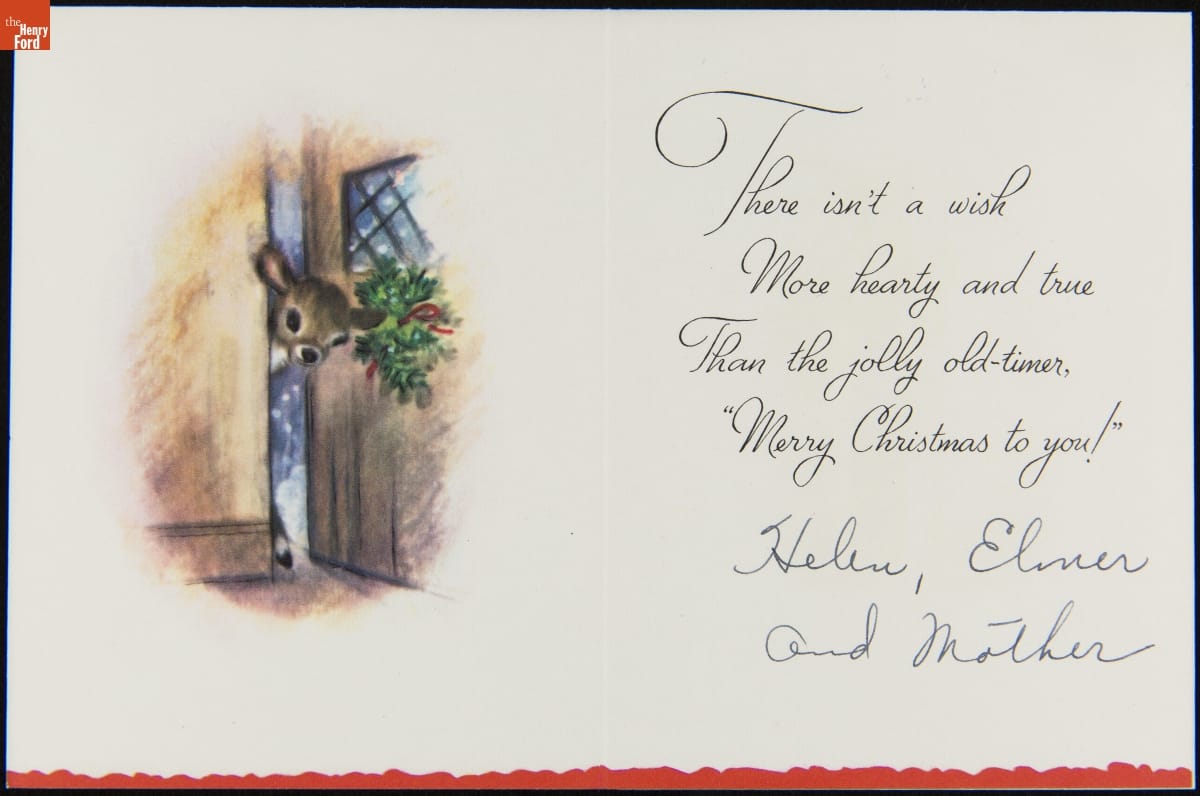 the
Henry
Ford
There isn't a wish
More hearty and true
Than the jolly old-timer,
“Merry Christmas to you!”
Helen, Elmer
and Mother